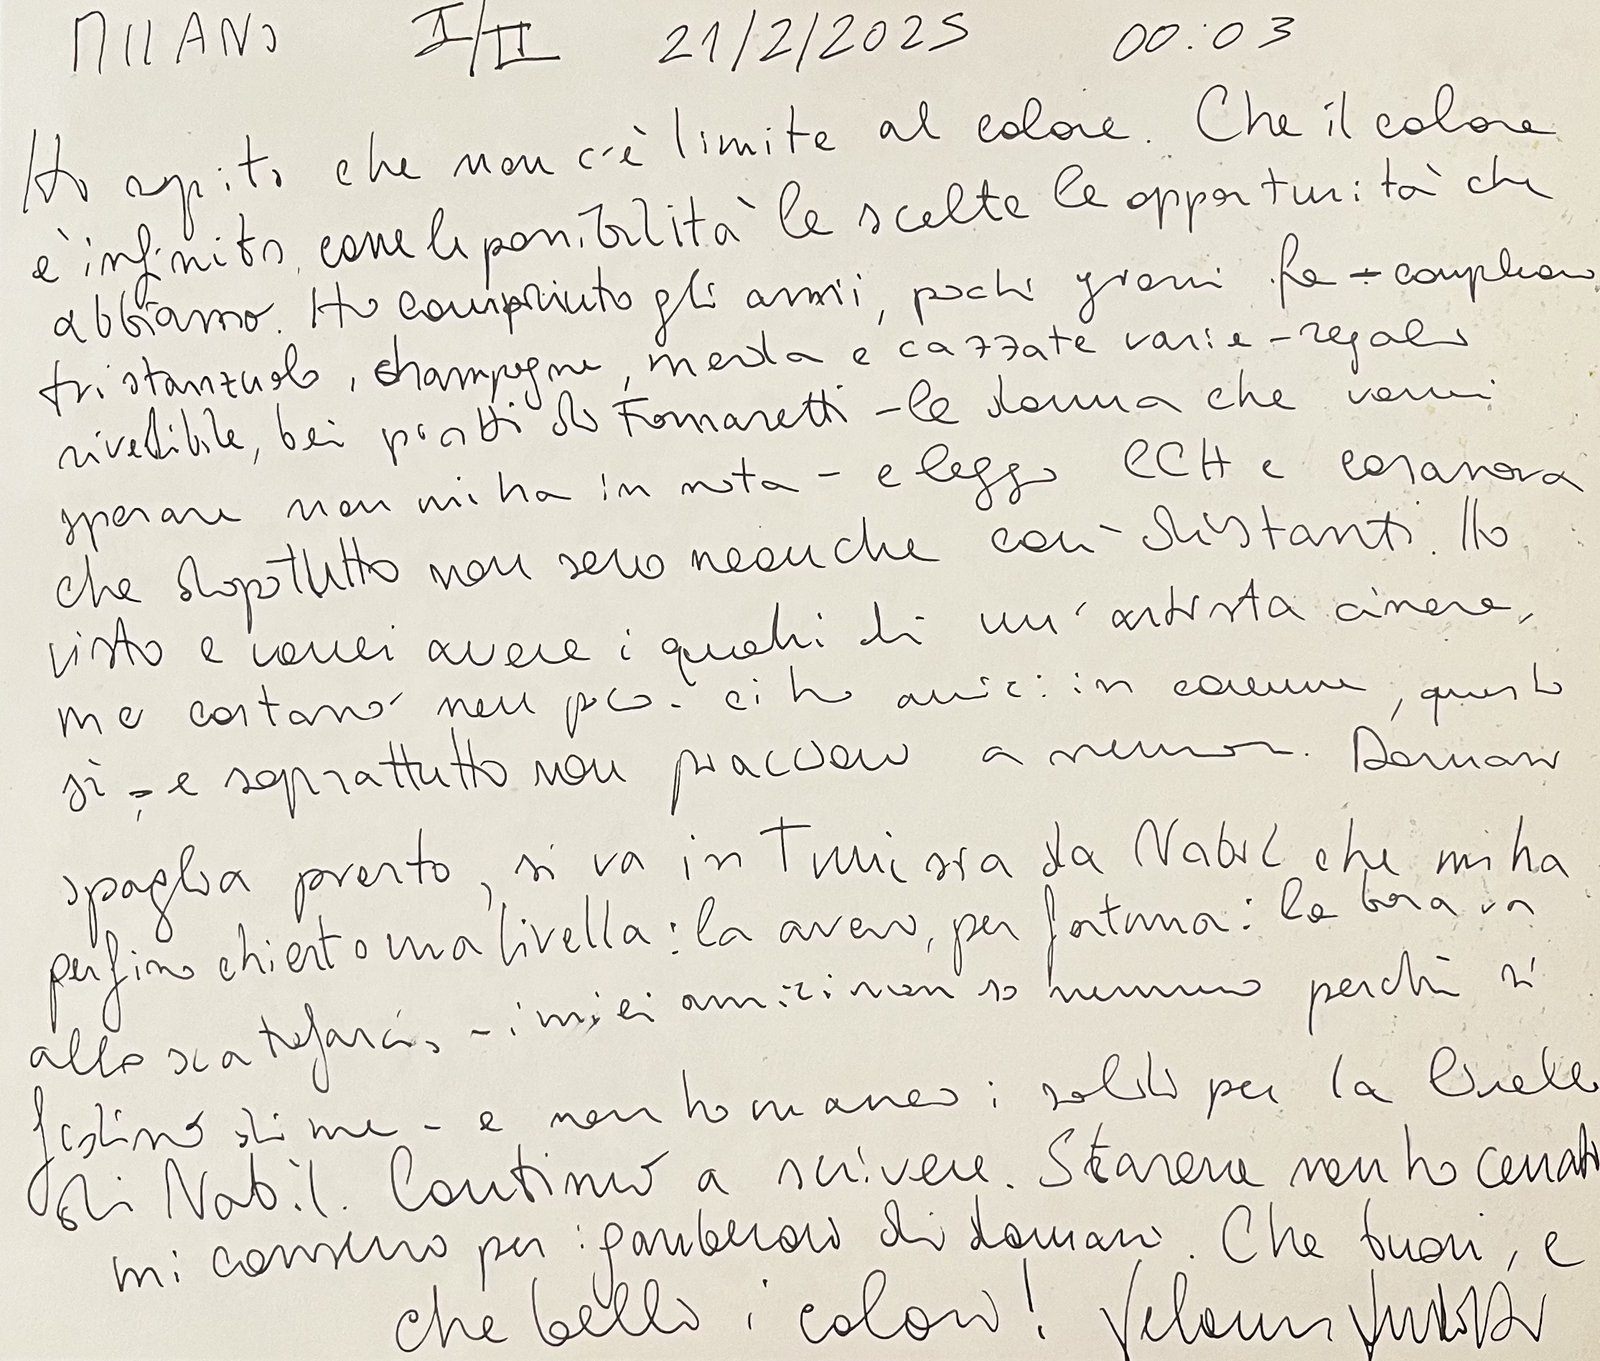 MILANO I/II 21/2/2025 00:03
Ho capito che non c'è limite al colore. Che il colore
è infinito, come le possibilità le scelte le opportunità che
abbiamo. Ho compiuto gli anni, pochi giorni fa - compleanno
tristanzuolo, champagne, merda e cazzate varie - regalo
rivedibile, bei piatti di Fornasetti - la donna che vorrei
sposare non mi ha in nota - e leggo CCH e Casanova
che dopotutto non sono neanche così distanti. Ho
visto e vorrei avere i quadri di un'artista cinese,
me costano non poco. ci ho amici in comune, questo
sì, - e soprattutto non piacciono a nessuno. Domani
sveglia presto, si va in Tunisia da Nabil che mi ha
perfino chiesto una livella: la avevo, per fortuna: la bora va
alla sca - i miei amici non so nemmeno perché si
fidino di me - e non ho manco i soldi per la livella
di Nabil. Continuo a scrivere. Stasera non ho cenato
mi conservo per i gamberoni di domani. Che buoni, e
che belli i colori!